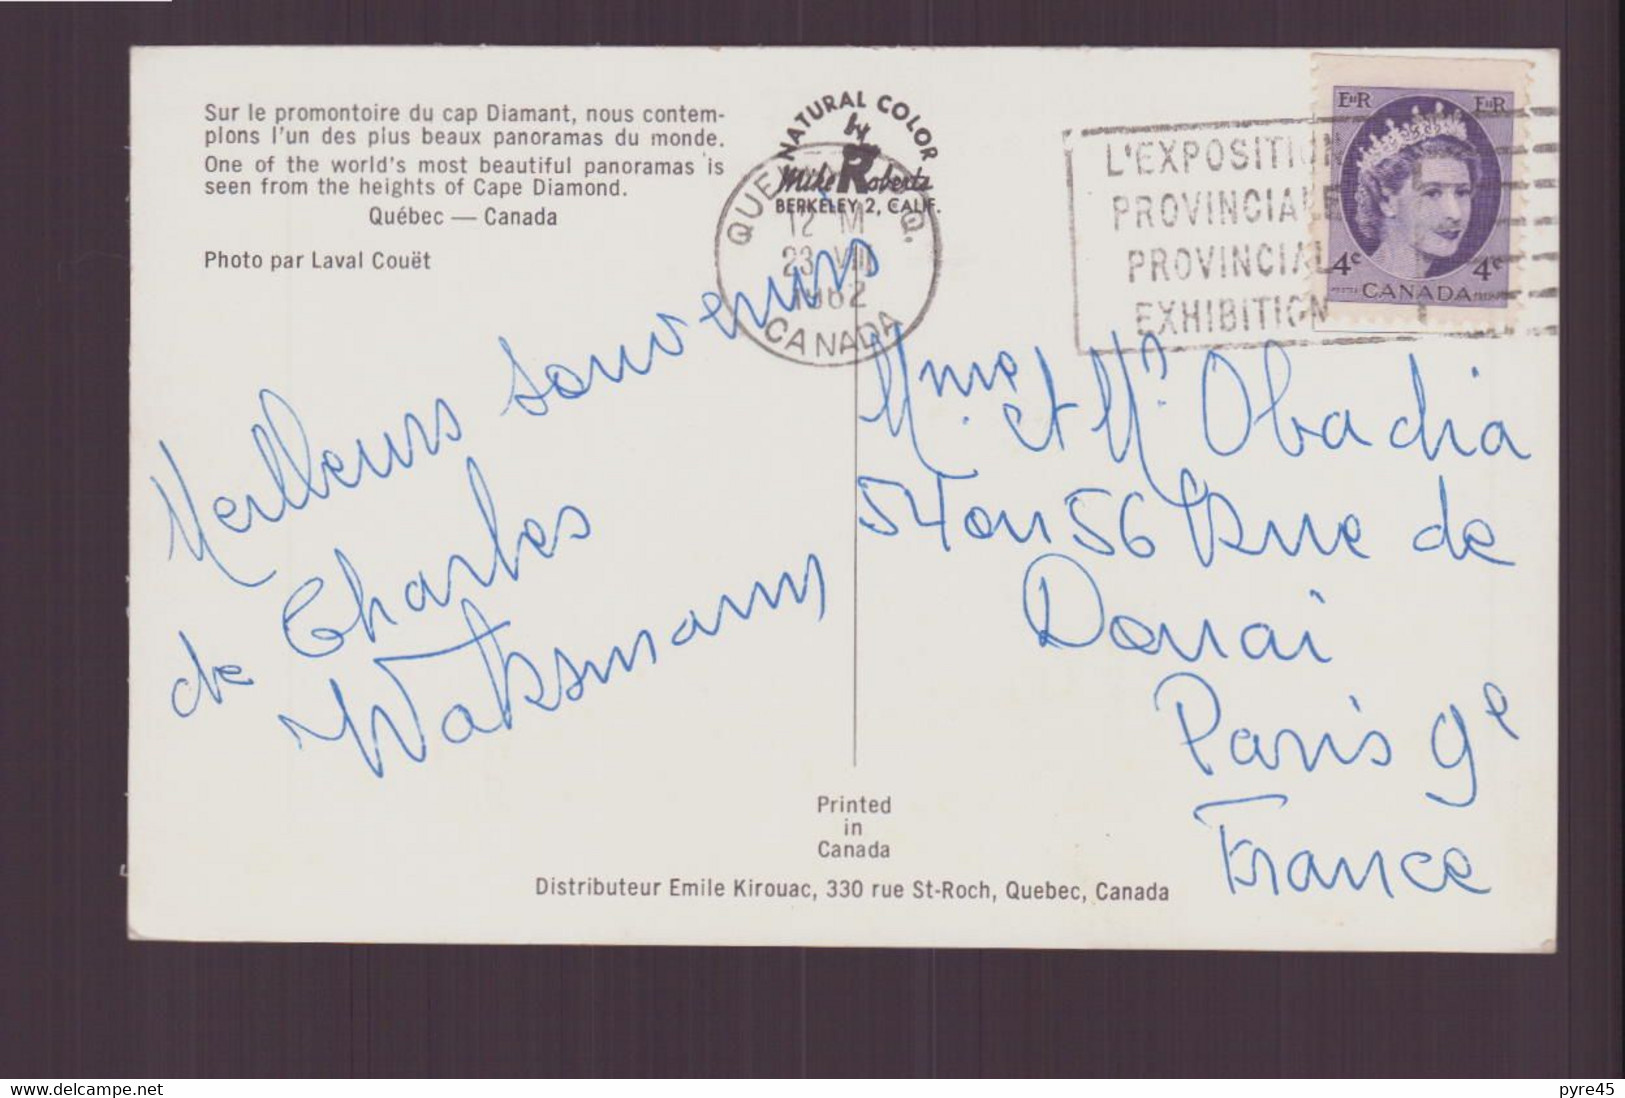 Sur le promontoire du cap Diamant, nous contem-
plons l'un des plus beaux panoramas du monde.
One of the world's most beautiful panoramas is
seen from the heights of Cape Diamond.
Québec — Canada
Photo par Laval Couët
NATURAL COLOR
by
Mike Roberts
BERKELEY 2, CALIF.
12 M
23 VII
1962
CANADA
L'EXPOSITION
PROVINCIALE
PROVINCIAL
EXHIBITION
EIIR EIIR
4c 4c
CANADA
Meilleurs souvenirs
de Charles
Waksmann
Mme et Mr Obadia
54 ou 56 Rue de
Douai
Paris 9e
France
Printed
in
Canada
Distributeur Emile Kirouac, 330 rue St-Roch, Quebec, Canada
www.delcampe.net
pyre45